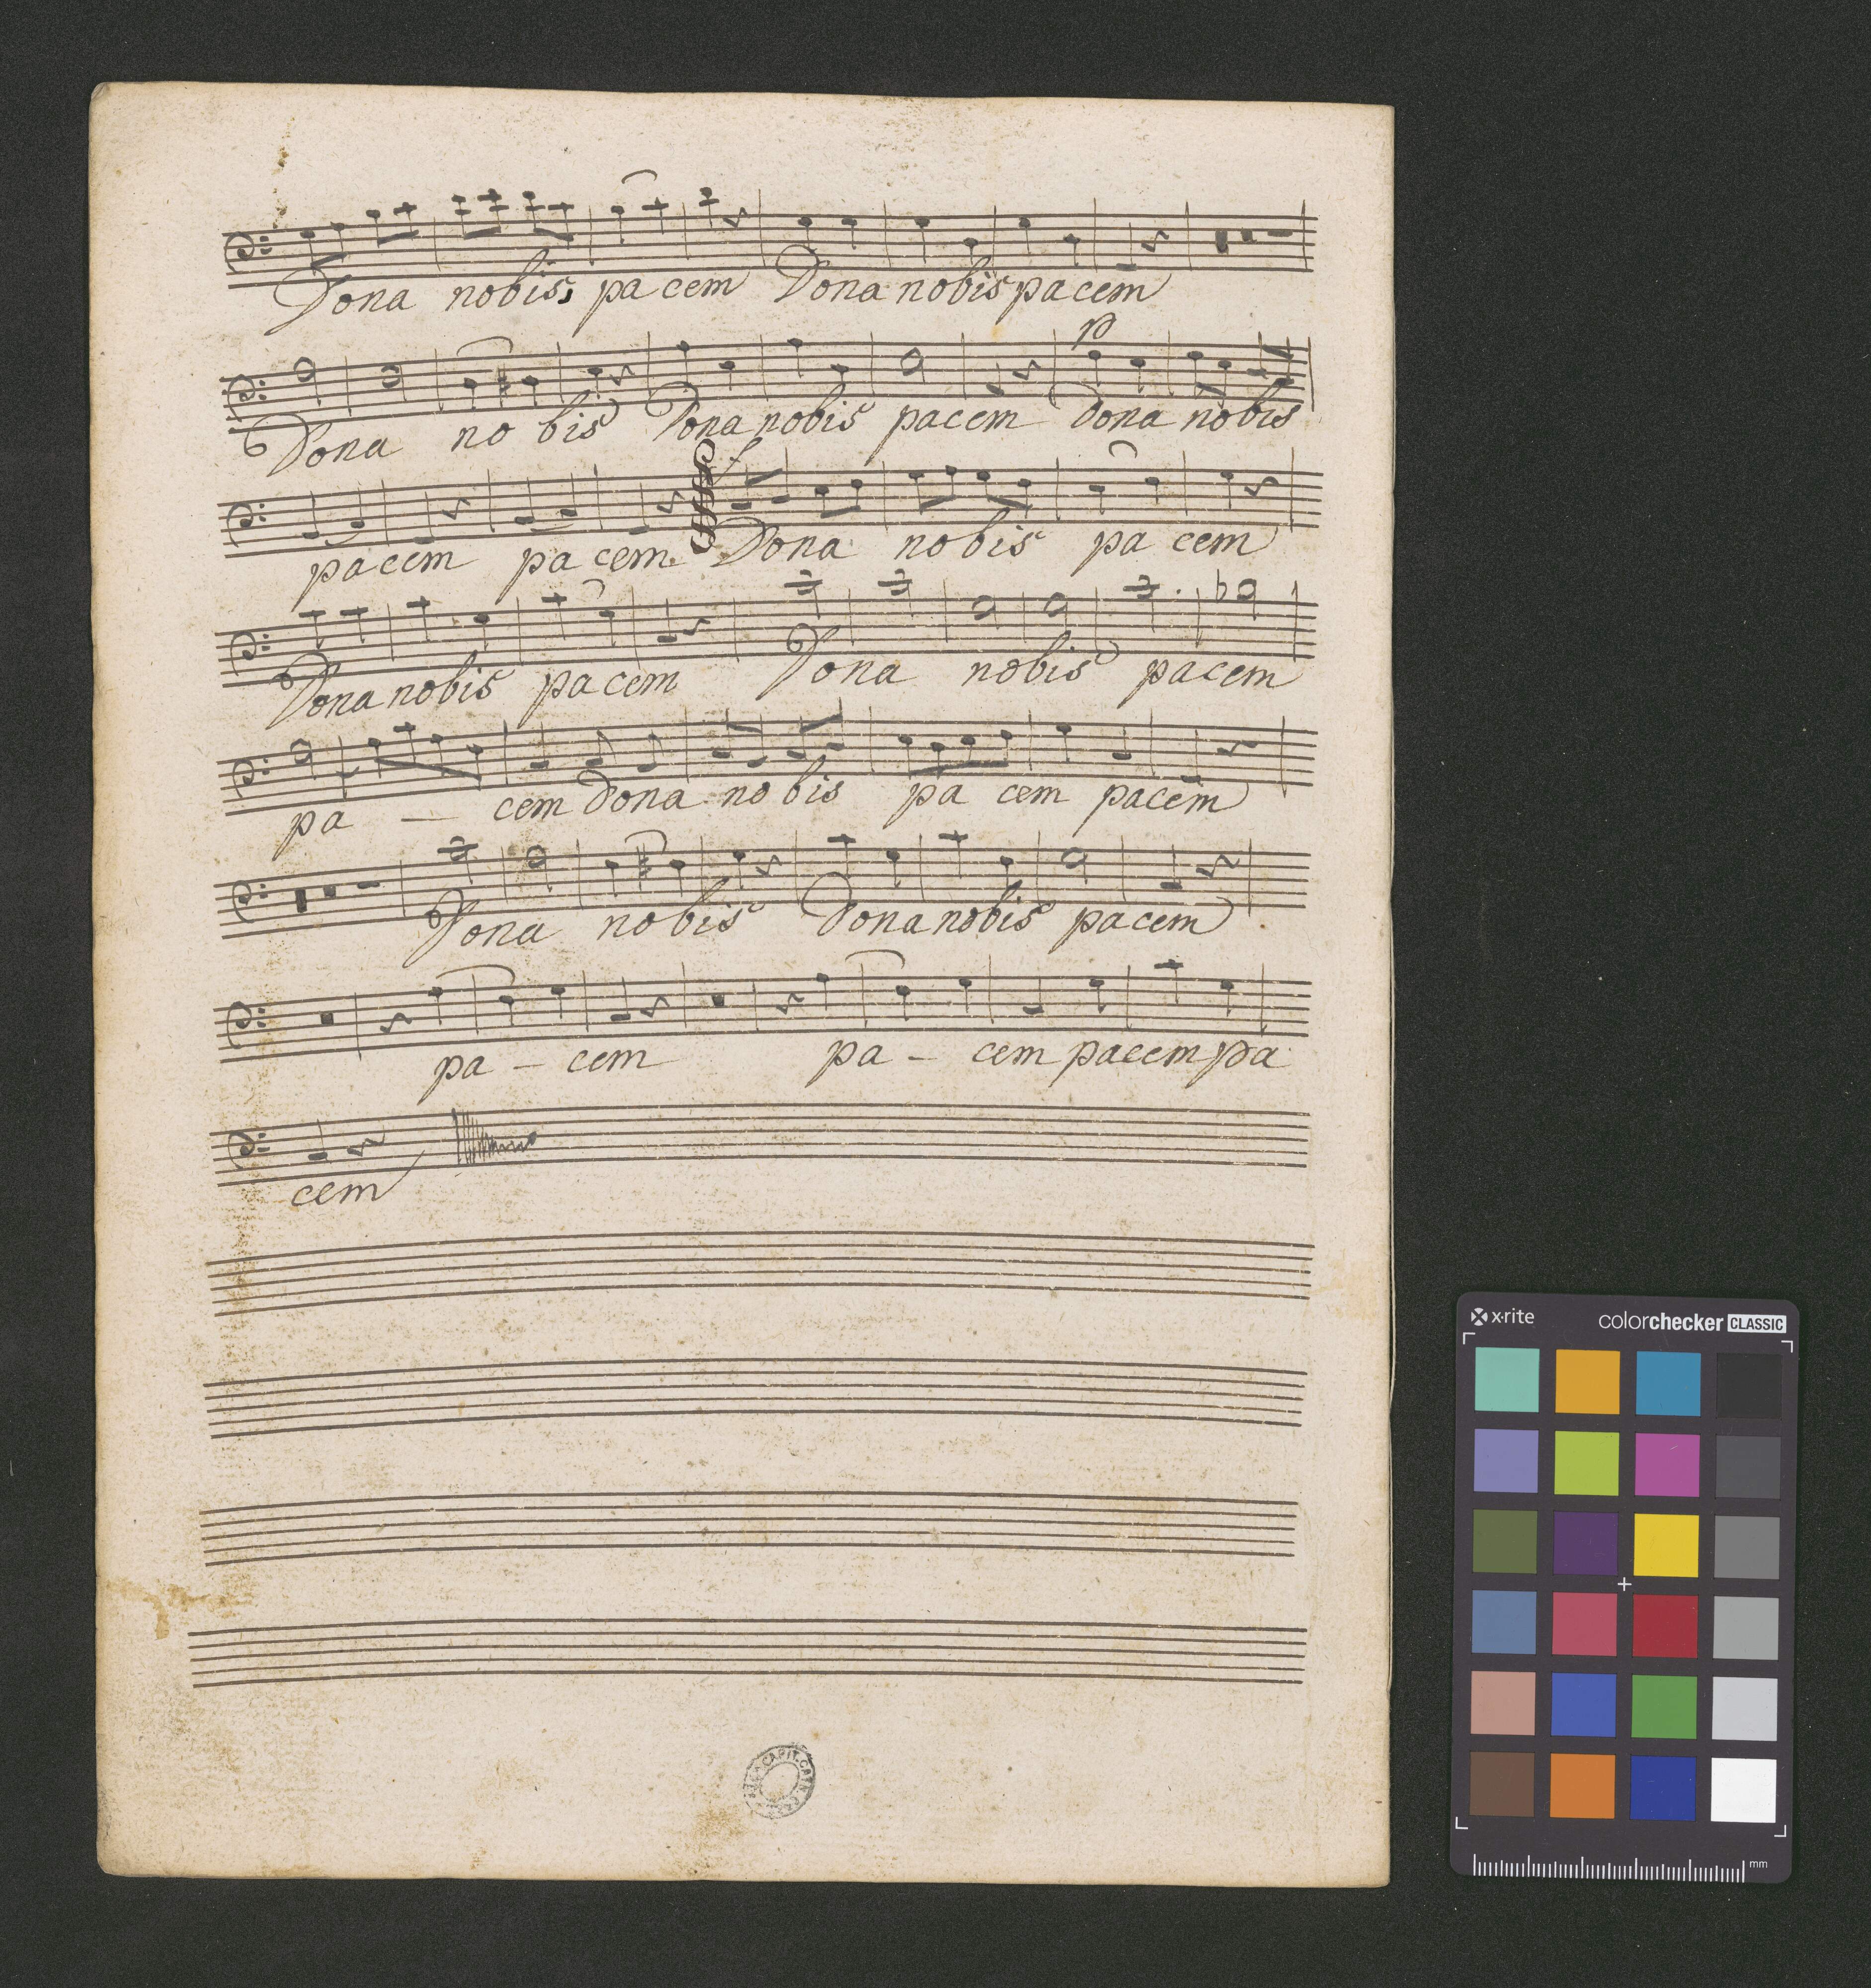 Dona nobis pacem Dona nobis pacem
p
Dona no bis Dona nobis pacem Dona nobis
f
pacem pa cem. Dona nobis pa cem
Dona nobis pa cem Dona nobis pacem
pa — cem Dona no bis pa cem pacem
Dona nobis Dona nobis pacem
pa - cem pa - cem pacem pa
cem
x·rite colorchecker CLASSIC
mm